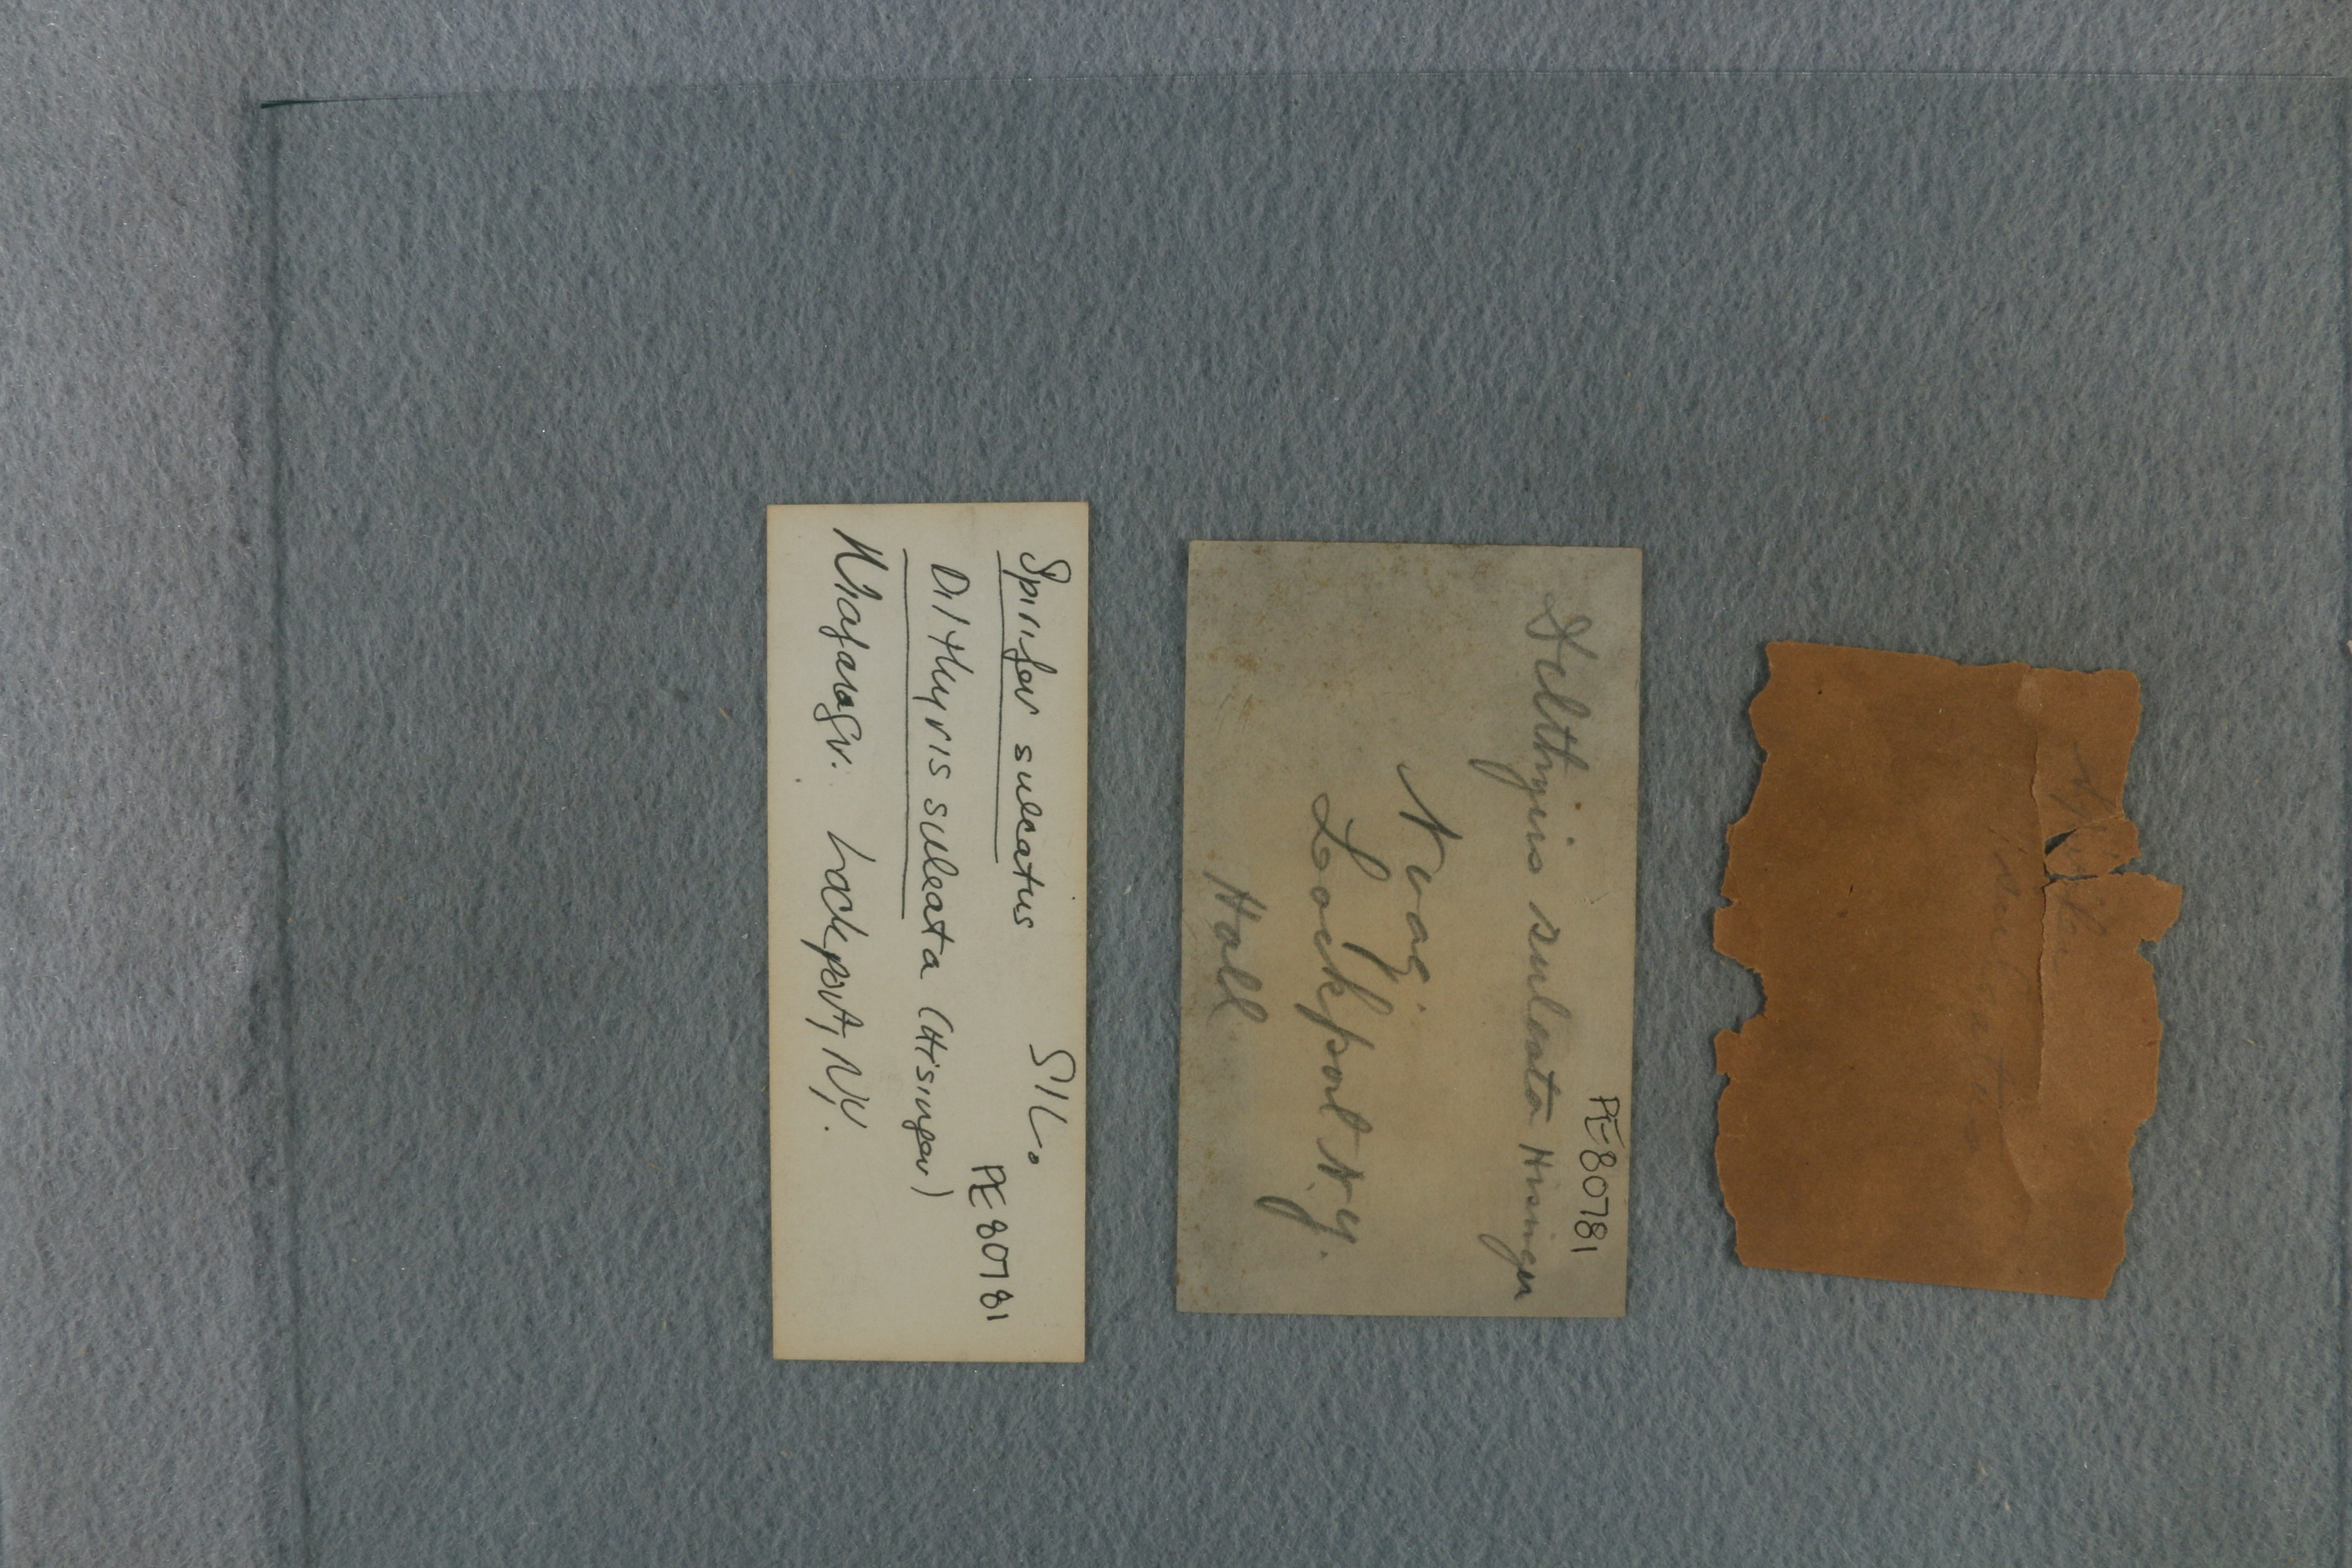 Spirifer sulcatus SIL.
PE 80781
Dilthyris sulcata (Hisinger)
Niagaragr. Lockport, NY.
PE 80781
Delthyris sulcata Hisinger
Niag.
Lockport N.Y.
Hall
Spirifer
sulcatus